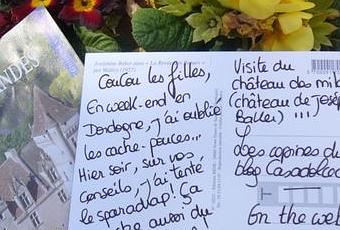 NDES
Joséphine Baker dans « La Revue
Coucou les filles,
En week-end en
Dordogne, j'ai oublié
les cache-pouces...
Hier soir, sur vos
conseils, j'ai tenté
le sparadrap! Ça
aussi du
Visite du
château des mil
(château de José
Baker) !!!
Les copines du
blog Casadéco
En the web